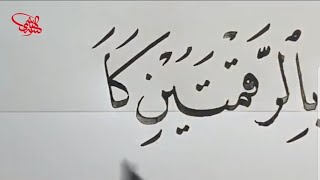 بِٱلرَّقْمَتَيْنِ كَأَ